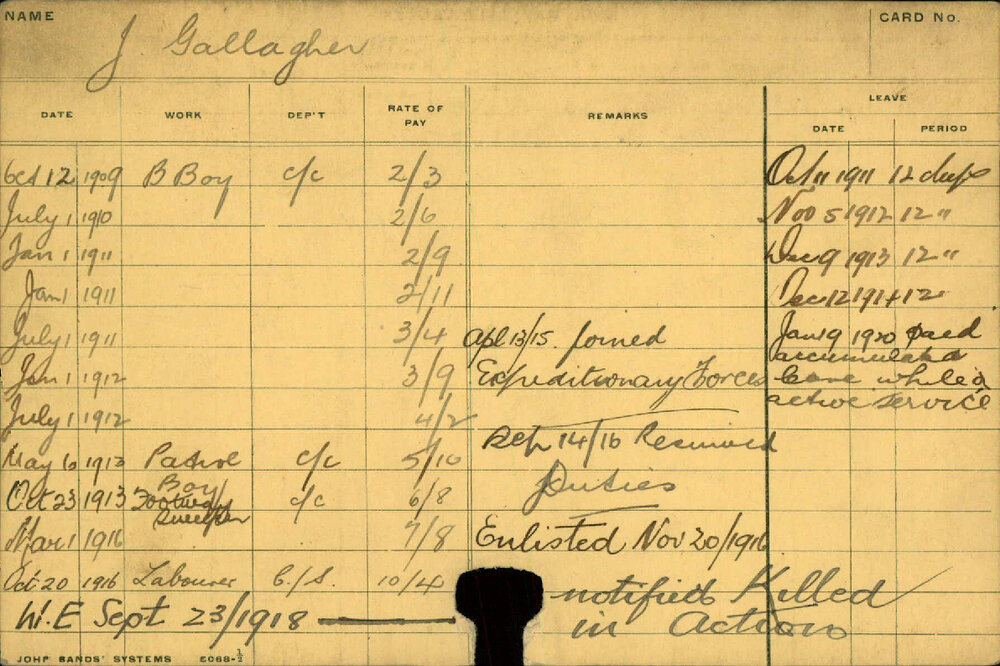 NAME J. Gallagher CARD No.
DATE WORK DEP'T RATE OF PAY REMARKS LEAVE
DATE PERIOD
Oct 12 1909 B Boy c/c 2/3 Oct 11 1911 12 days
July 1 1910 2/6 Nov 5 1912 12 "
Jan 1 1911 2/9 Dec 9 1913 12 "
Jan 1 1911 2/11 Dec 12 1914 12 "
July 1 1911 3/4 Apl 13/15. Joined Jan 19 1920 paid
accumulated
Jan 1 1912 3/9 Expeditionary Forces leave while on
active service
July 1 1912 4/2
Sep 14/16 Resumed
May 6 1913 Patrol c/c 5/10
Boy Duties
Oct 23 1913 Footway c/c 6/8
Sweeper
Mar 1 1916 7/8 Enlisted Nov 20/1916
Oct 20 1916 Labourer C./S. 10/4 notified Killed
W.E Sept 23/1918 in Action
JOHN SANDS' SYSTEMS 6068-½